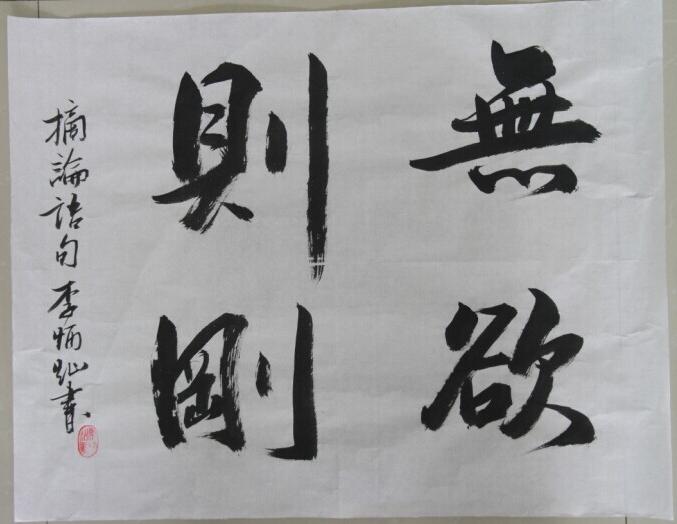 無欲
則剛
摘論語句 李炳灿書